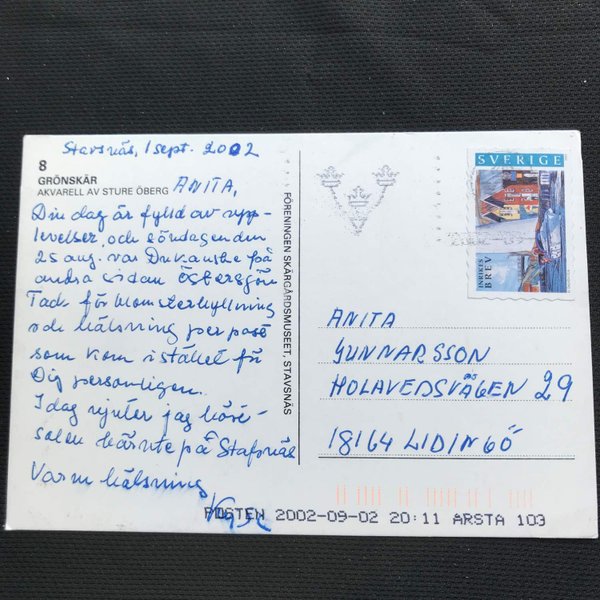 Stavsnäs, 1 sept. 2002
8
GRÖNSKÄR
AKVARELL AV STURE ÖBERG
ANITA,
Din dag är fylld av upp-
levelser, och söndagen den
25 aug. var Du kanske på
andra sidan Östersjön
Tack för blomsterhyllning
och hälsning per post
som kom i stället för
Dig personligen.
I dag njuter jag höst-
solen härute på Stafsnäs
Varm hälsning
FÖRENINGEN SKÄRGÅRDSMUSEET, STAVSNÄS
SVERIGE
INRIKES
BREV
ANITA
GUNNARSSON
HOLAVEDSVÄGEN 29
18164 LIDINGÖ
POSTEN 2002-09-02 20:11 ARSTA 103